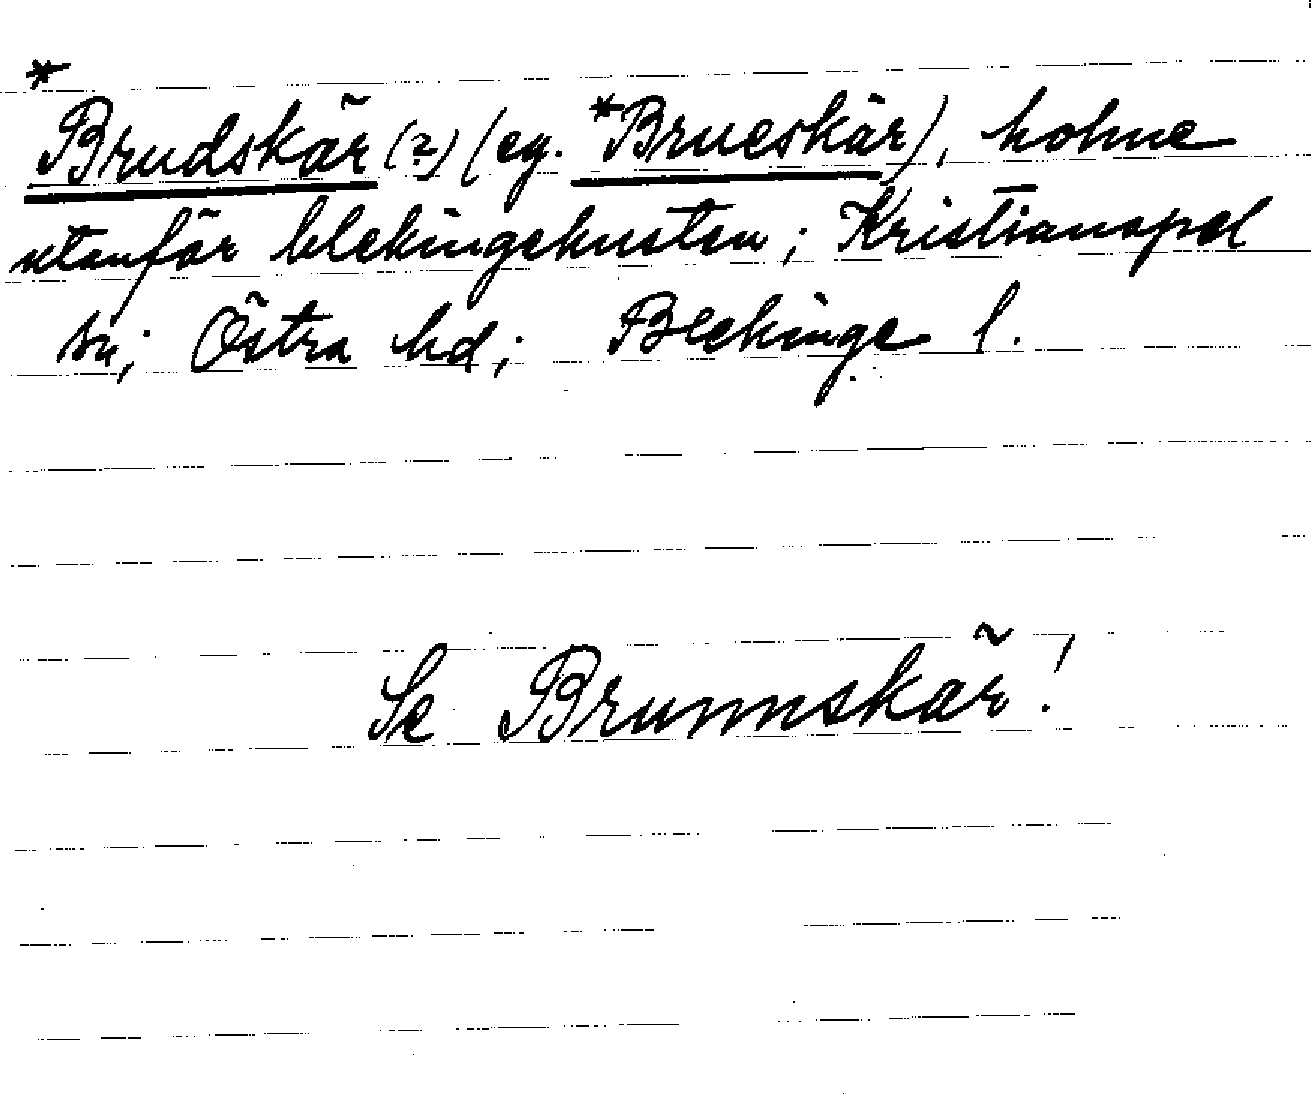 *Brudskär (?) (eg. *Brueskär), holme
utanför blekingekusten; Kristianopel
sn; Östra hd; Blekinge l.
Se Brunnskär!